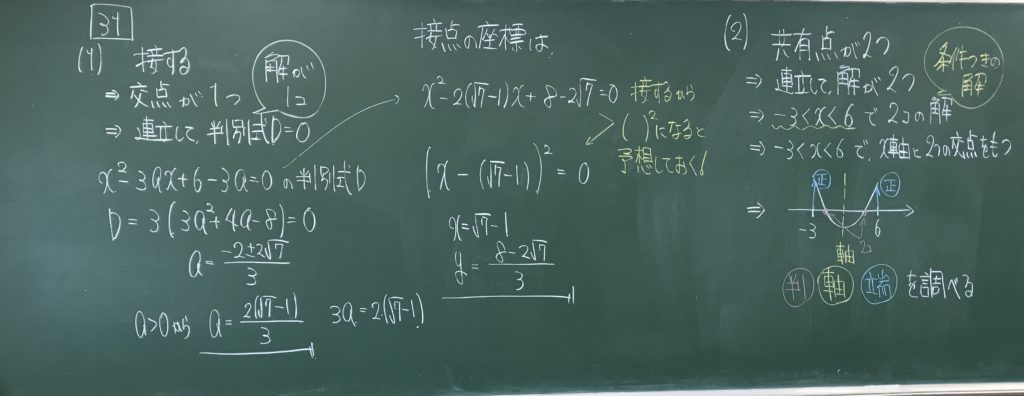 34
(1) 接する
⇒ 交点が1つ
解が
1コ
⇒ 連立して, 判別式D=0
x²-3ax+6-3a=0 の判別式D
D = 3(3a²+4a-8)=0
a = \frac{-2±2√7}{3}
a>0から a = \frac{2(√7-1)}{3} 3a=2(√7-1)
接点の座標は,
x²-2(√7-1)x+8-2√7=0
接するから
( )²になると
予想しておく!
(x-(√7-1))²=0
x=√7-1
y=\frac{8-2√7}{3}
(2) 共有点が2つ
条件つきの
解
⇒ 連立して, 解が2つ
⇒ -3<x<6 で 2コの解
⇒ -3<x<6 で, x軸と2つの交点をもつ
⇒
正 正
-3 6
2コ
軸
判 軸 端 を調べる